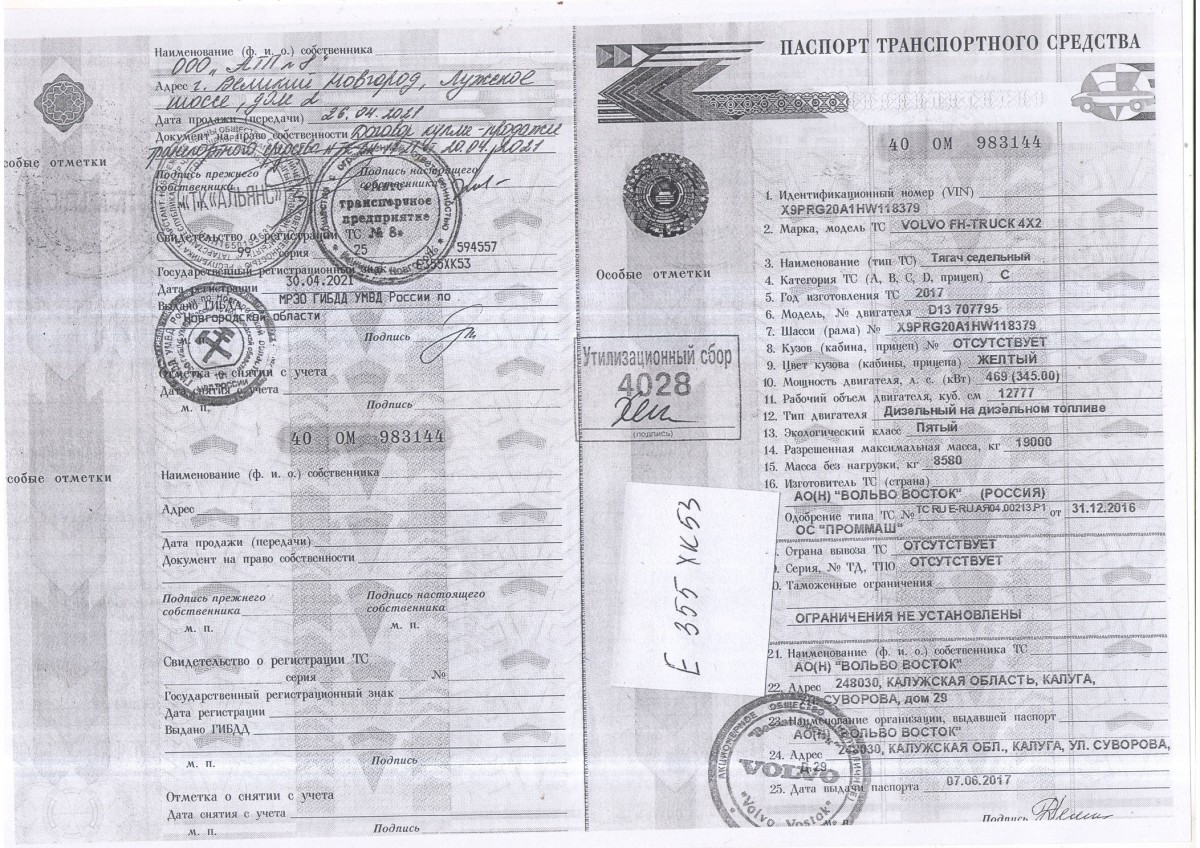 Наименование (ф. и. о.) собственника
ООО "АТП № 8"
Адрес г. Великий Новгород, Лужское
шоссе, дом 2
Дата продажи (передачи) 26.04.2021
Документ на право собственности Договор купли-продажи
транспортного средства 20.04.2021
Подпись прежнего собственника
Подпись настоящего собственника
"АЛЬЯНС"
транспортное
предприятие
№ 8»
Свидетельство о регистрации ТС
99 25 серия 594557
Государственный регистрационный знак Е355ХК53
Дата регистрации 30.04.2021
Выдано ГИБДД МРЭО ГИБДД УМВД России по
Новгородской области
м. п.
Подпись
МВД РОССИИ
Отметка о снятии с учета
Дата снятия с учета
м. п.
Подпись
40 ОМ 983144
особые отметки
особые отметки
Наименование (ф. и. о.) собственника
Адрес
Дата продажи (передачи)
Документ на право собственности
Подпись прежнего собственника
Подпись настоящего собственника
м. п.
м. п.
Свидетельство о регистрации ТС
серия №
Государственный регистрационный знак
Дата регистрации
Выдано ГИБДД
м. п.
Подпись
Отметка о снятии с учета
Дата снятия с учета
м. п.
Подпись
ПАСПОРТ ТРАНСПОРТНОГО СРЕДСТВА
40 ОМ 983144
Особые отметки
Утилизационный сбор
4028
(подпись)
Е 355 ХК53
1. Идентификационный номер (VIN)
X9PRG20A1HW118379
2. Марка, модель ТС VOLVO FH-TRUCK 4X2
3. Наименование (тип ТС) Тягач седельный
4. Категория ТС (A, B, C, D, прицеп) C
5. Год изготовления ТС 2017
6. Модель, № двигателя D13 707795
7. Шасси (рама) № X9PRG20A1HW118379
8. Кузов (кабина, прицеп) № ОТСУТСТВУЕТ
9. Цвет кузова (кабины, прицепа) ЖЕЛТЫЙ
10. Мощность двигателя, л. с. (кВт) 469 (345.00)
11. Рабочий объем двигателя, куб. см 12777
12. Тип двигателя Дизельный на дизельном топливе
13. Экологический класс Пятый
14. Разрешенная максимальная масса, кг 19000
15. Масса без нагрузки, кг 8580
16. Изготовитель ТС (страна)
АО(Н) "ВОЛЬВО ВОСТОК" (РОССИЯ)
Одобрение типа ТС № ТС RU E-RU.АЯ04.00213.Р1 от 31.12.2016
ОС "ПРОММАШ"
Страна вывоза ТС ОТСУТСТВУЕТ
Серия, № ТД, ТПО ОТСУТСТВУЕТ
Таможенные ограничения
ОГРАНИЧЕНИЯ НЕ УСТАНОВЛЕНЫ
21. Наименование (ф. и. о.) собственника ТС
АО(Н) "ВОЛЬВО ВОСТОК"
22. Адрес 248030, КАЛУЖСКАЯ ОБЛАСТЬ, КАЛУГА,
СУВОРОВА, дом 29
23. Наименование организации, выдавшей паспорт
АО(Н) "ВОЛЬВО ВОСТОК"
24. Адрес 248030, КАЛУЖСКАЯ ОБЛ., КАЛУГА, УЛ. СУВОРОВА,
Д.29
25. Дата выдачи паспорта 07.06.2017
VOLVO
"Volvo Vostok"
м. п.
Подпись